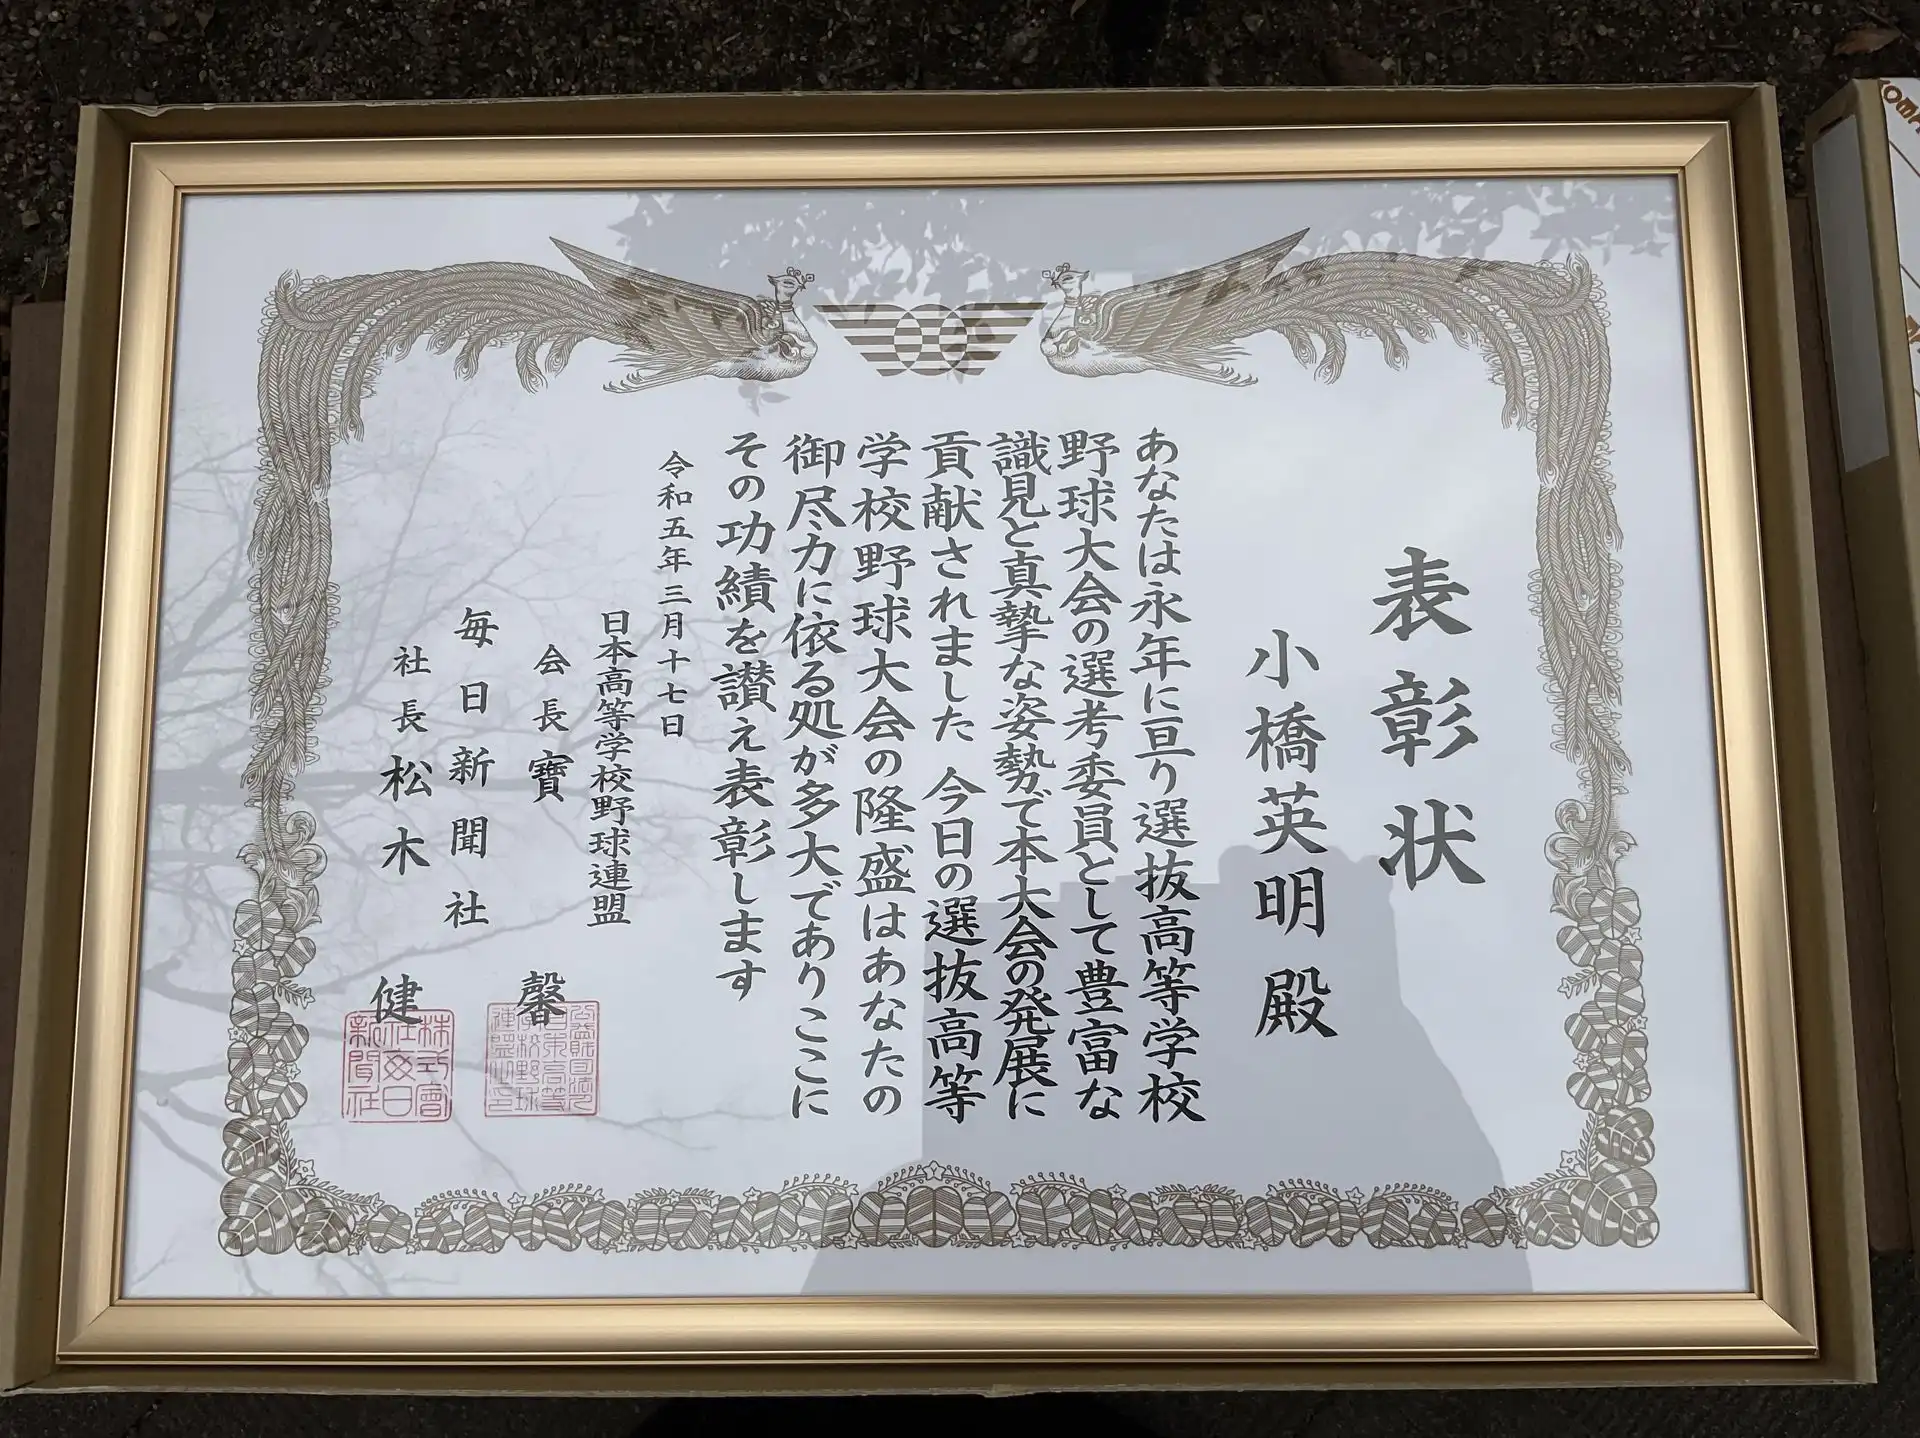 表彰状
小橋英明 殿
あなたは永年に亘り選抜高等学校
野球大会の選考委員として豊富な
識見と真摯な姿勢で本大会の発展に
貢献されました 今日の選抜高等
学校野球大会の隆盛はあなたの
御尽力に依る処が多大でありここに
その功績を讃え表彰します
令和五年三月十七日
日本高等学校野球連盟
会長 寶 馨
毎日新聞社
社長 松木 健
株式會
社每日
新聞社